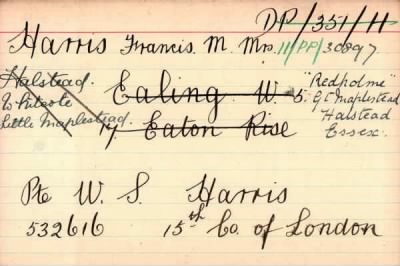 DP/351/11
Harris Francis. M. Mrs. 11/PP/30897
Halstead.
Whiteote
Little Maplestead.
Ealing W. 5.
17 Eaton Rise
"Redholme"
Gt Maplestead
Halstead
Essex.
Pte W. S. Harris
532616 15th Co. of London